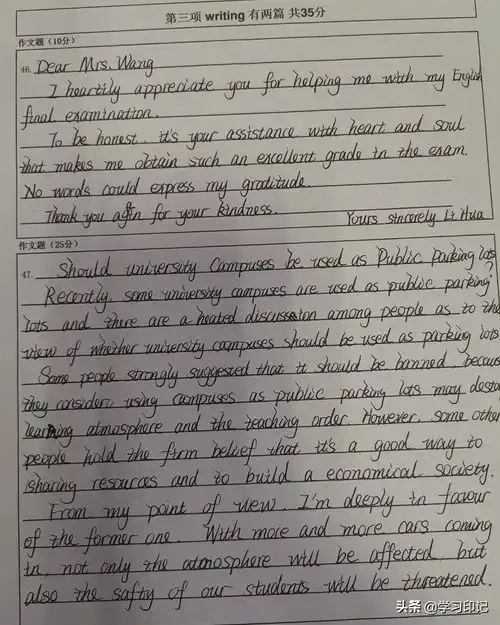 第三项 writing 有两篇 共35分
作文题（10分）
46. Dear Mrs. Wang
I heartily appreciate you for helping me with my English
final examination.
To be honest, it's your assistance with heart and soul
that makes me obtain such an excellent grade in the exam.
No words could express my gratitude.
Thank you again for your kindness.
Yours sincerely Li Hua
作文题（25分）
47. Should university Campuses be used as Public Parking lots?
Recently, some university campuses are used as public parking
lots and there are a heated discussion among people as to the
view of whether university campuses should be used as parking lots.
Some people strongly suggested that it should be banned, because
they consider using campuses as public parking lots may
learning atmosphere and the teaching order. However, some other
people hold the firm belief that it's a good way to
sharing resources and to build a economical society.
From my point of view, I'm deeply in favour
of the former one. With more and more cars coming
in, not only the atmosphere will be affected, but
also the safty of our students will be threatened.
头条 @学习印记